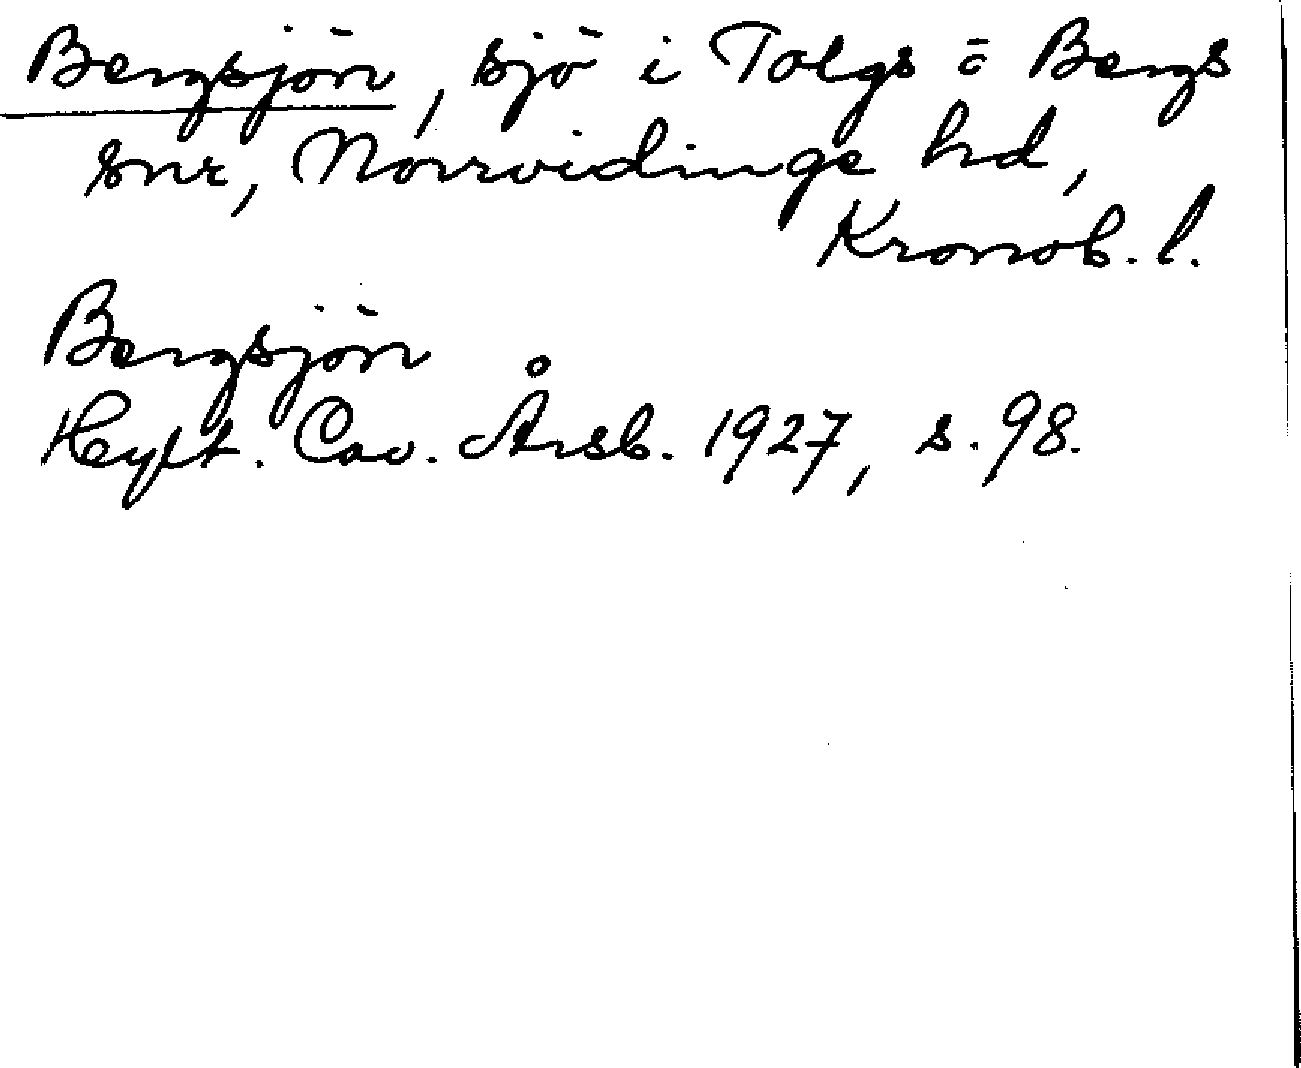 Bergsjön, sjö i Tolgs o Bergs
snr, Norrvidinge hd,
Kronob. l.
Bergsjön
Hylt. Cav. Årsb. 1927, s. 98.